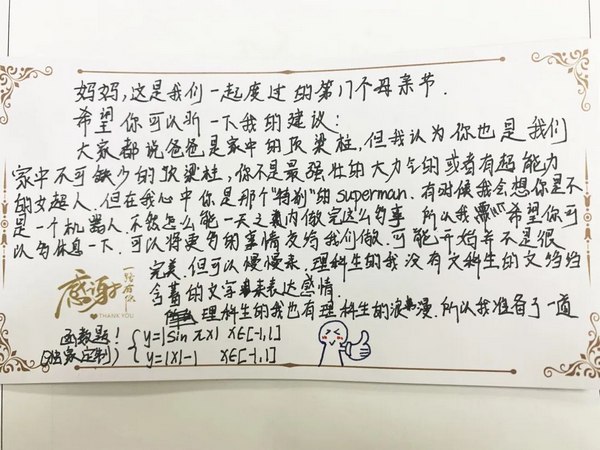 妈妈,这是我们一起度过的第17个母亲节.
希望你可以听一下我的建议:
大家都说爸爸是家中的顶梁柱,但我认为你也是我们
家中不可缺少的顶梁柱,你不是最强壮的大力气的或者有超能力
的女超人.但在我心中你是那个"特别"的superman.有时候我会想你是不
是一个机器人.不然怎么能一天之内做完这么多事 所以我 希望你可
以多休息一下.可以将更多的事情交给我们做.可能开始并不是很
完美,但可以慢慢来,理科生的我没有文科生的文绉绉
含蓄的文字来表达感情.
理科生的我也有理科生的浪漫.所以我准备了一道
函数题! { y=|sin πx| x∈[-1,1]
(独家定制) y=|x|-1 x∈[-1,1]
感谢
一路有你
THANK YOU